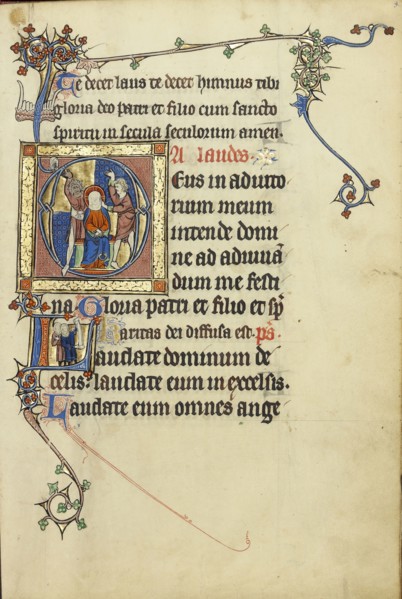 Te decet laus te decet himnus tibi
gloria deo patri et filio cum sancto
spiritu in secula seculorum amen.
A laudes.
Deus in adiuto
rium meum
intende domi
ne ad adiuuā
dum me festi
na Gloria patri et filio et sp̄
Karitas dei diffusa est. ps̄
Laudate dominum de
celis: laudate eum in excelsis.
Laudate eum omnes ange